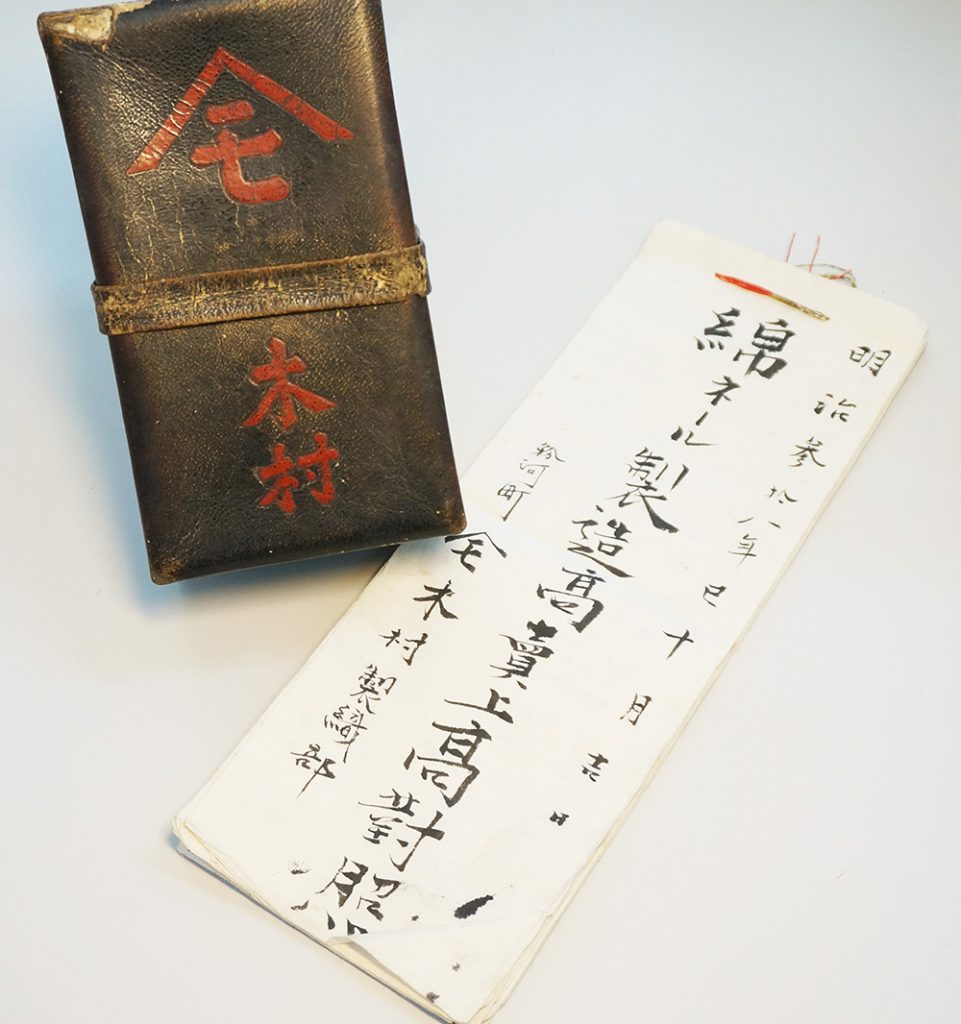 モ
木村
明治参拾八年巳十月吉日
綿ネール製造高賣上高對照
粉河町 モ 木村製織部